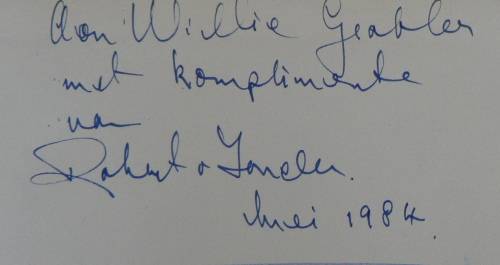 Aan Willie Grabler
met komplimente
van
Robert v Tonder.
Mei 1984.